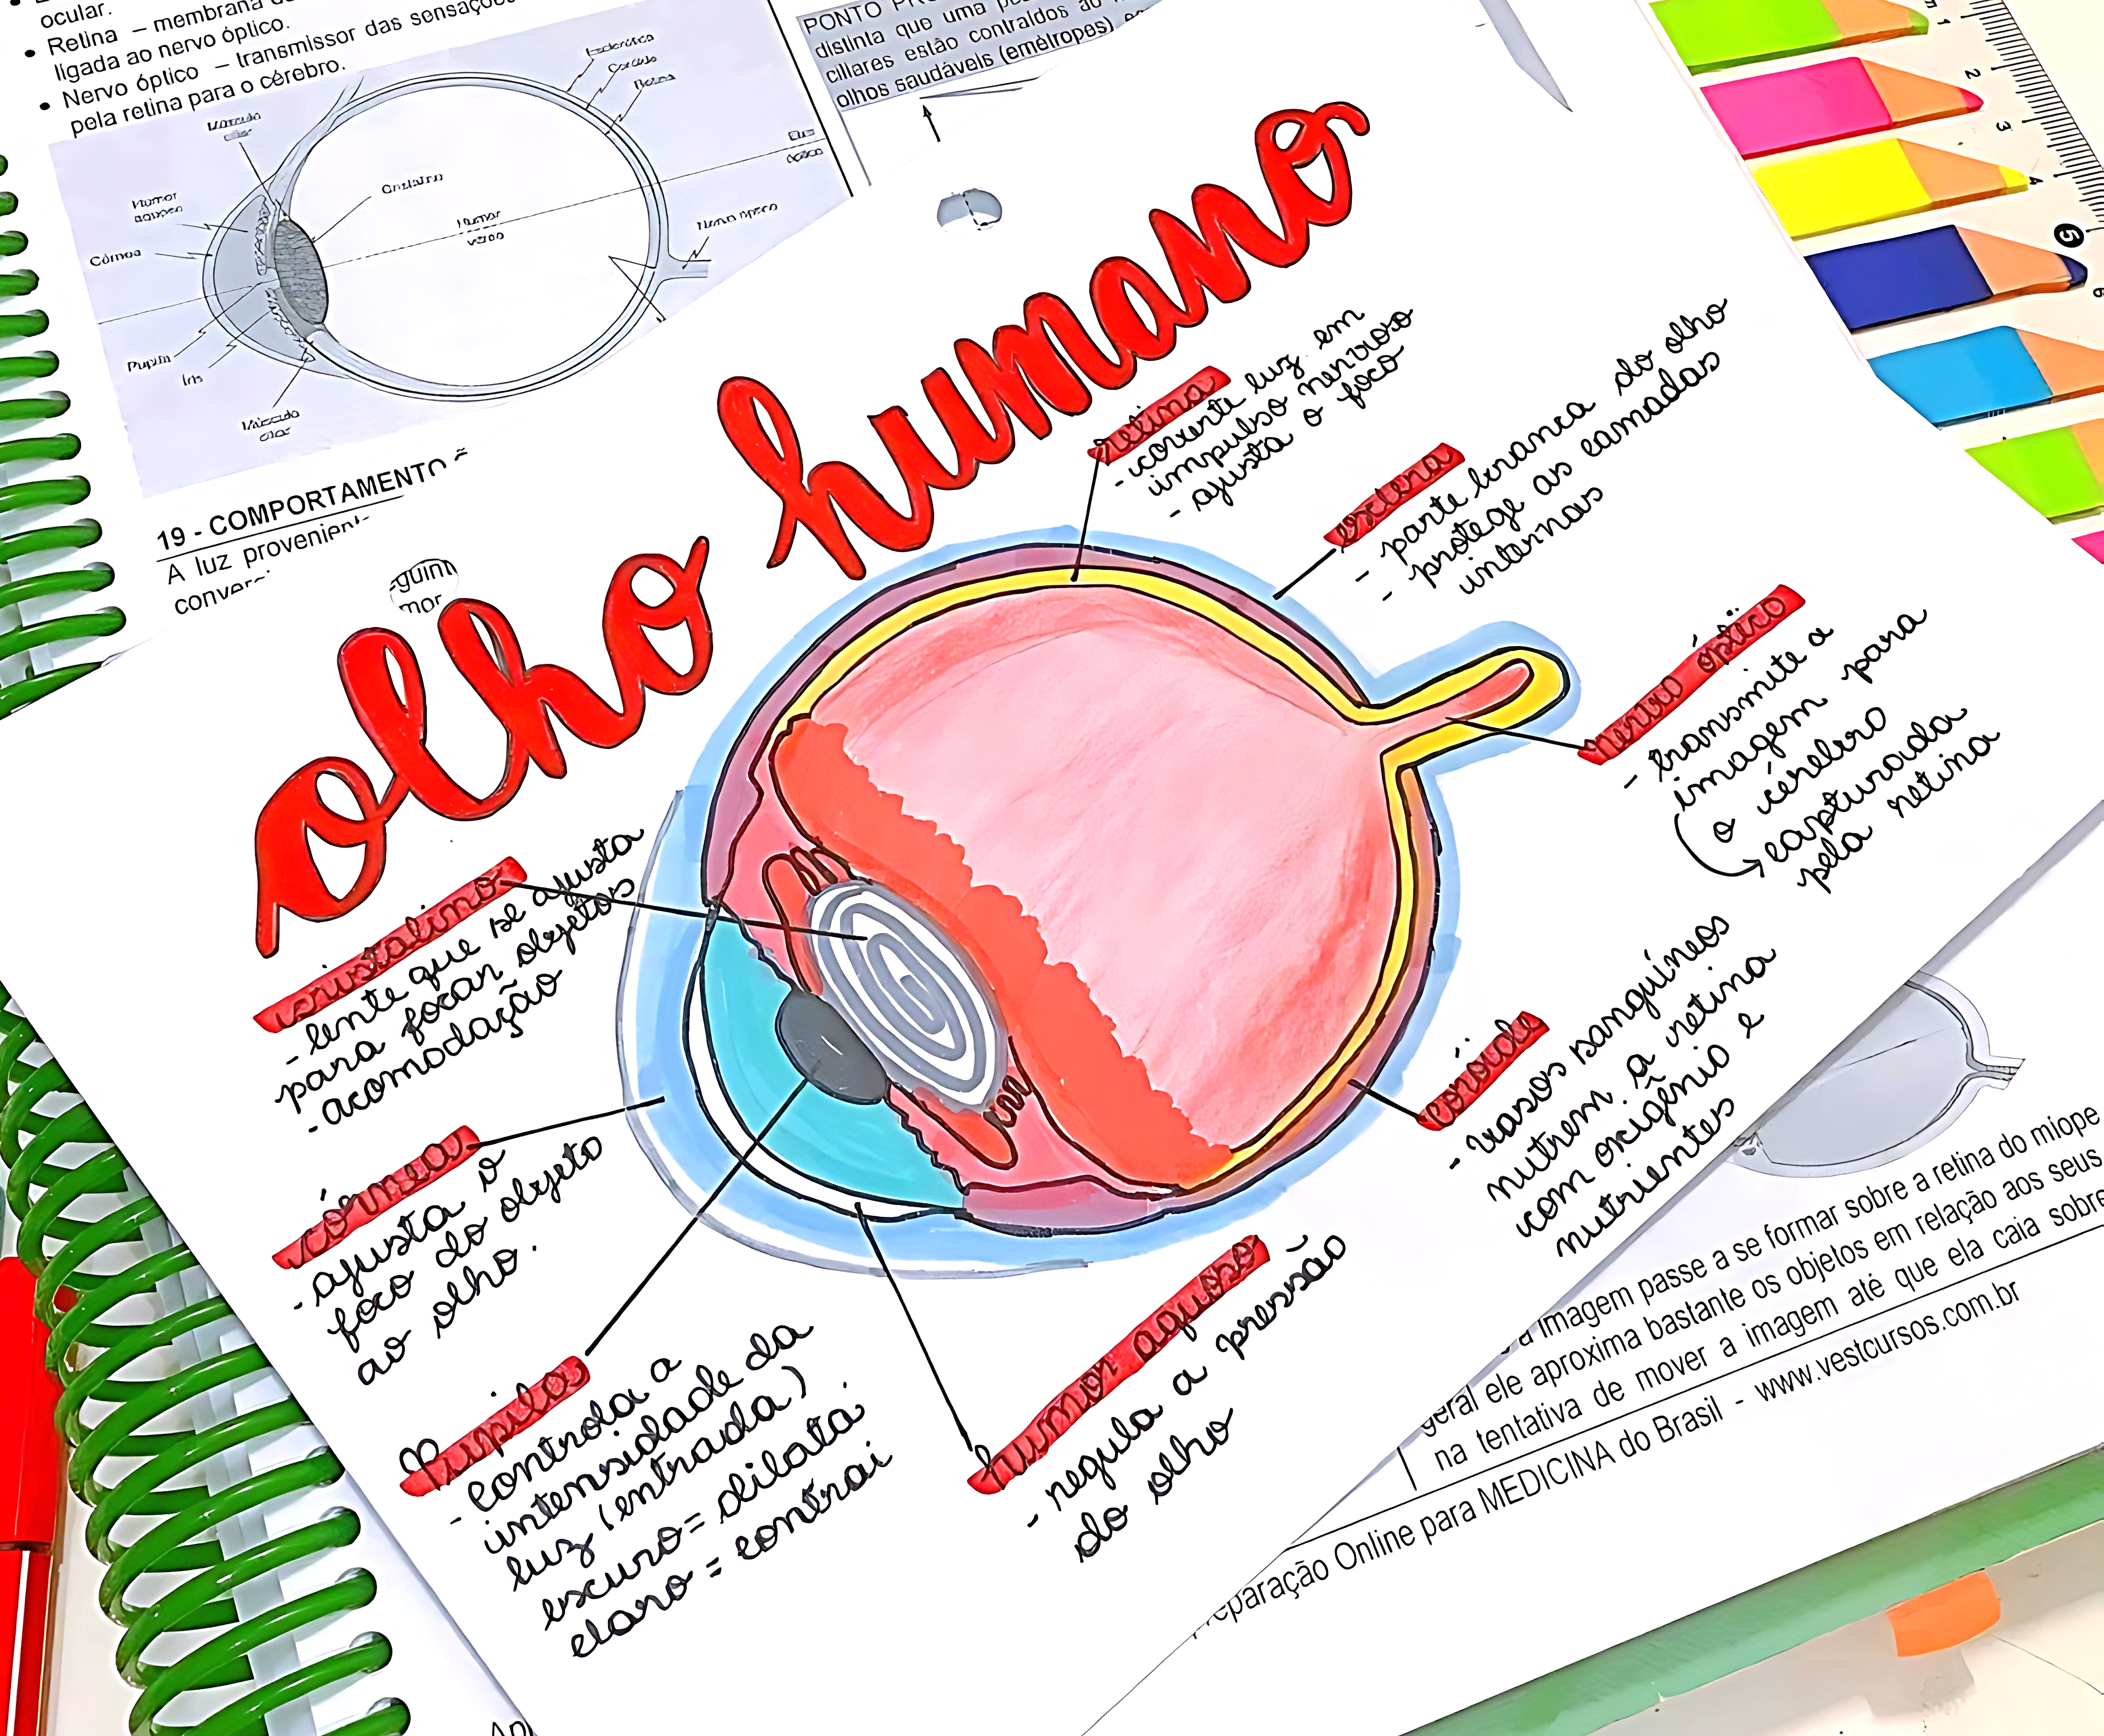 ocular.
Retina – membrana
ligada ao nervo óptico.
Nervo óptico – transmissor das sensações
pela retina para o cérebro.
Humor
Córnea
Pupila
Íris
Cristalino
Humor
19 - COMPORTAMENTO
A luz
PONTO
distinta que uma
ciliares estão contraídos ao
olhos saudáveis (emétropes)
1
2
3
4
5
6
olho humano
retina
- converte luz em
impulso nervoso
- ajusta o foco
esclera
- parte branca do olho
- protege as camadas
internas
nervo óptico
- transmite a
imagem para
o cérebro
capturada
pela retina
cristalino
- lente que se ajusta
para focar objetos
- acomodação
córnea
- ajusta o
foco do objeto
ao olho.
Pupila
- controla a
intensidade da
luz (entrada)
escuro = dilata
claro = contrai
humor aquoso
- regula a pressão
do olho
coróide
- vasos sanguíneos
nutrem a retina
com oxigênio e
nutrientes
a imagem passe a se formar sobre a retina do míope
geral ele aproxima bastante os objetos em relação aos seus
na tentativa de mover a imagem até que ela caia sobre
Preparação Online para MEDICINA do Brasil - www.vestcursos.com.br